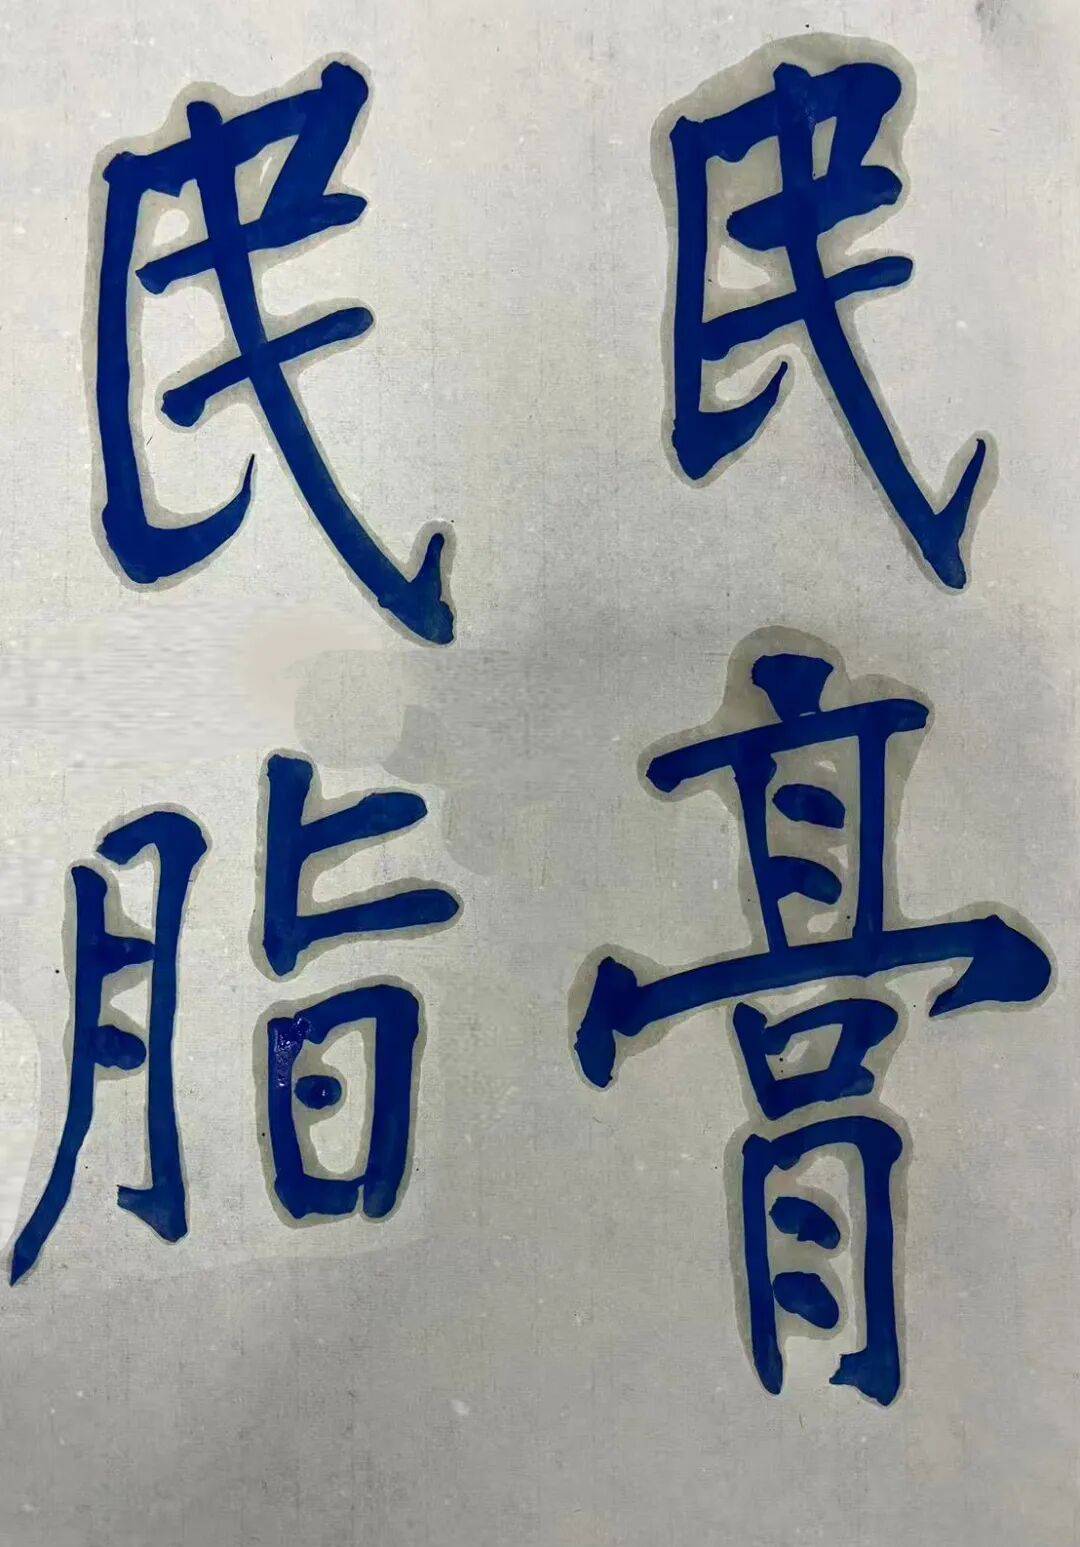 民膏
民脂